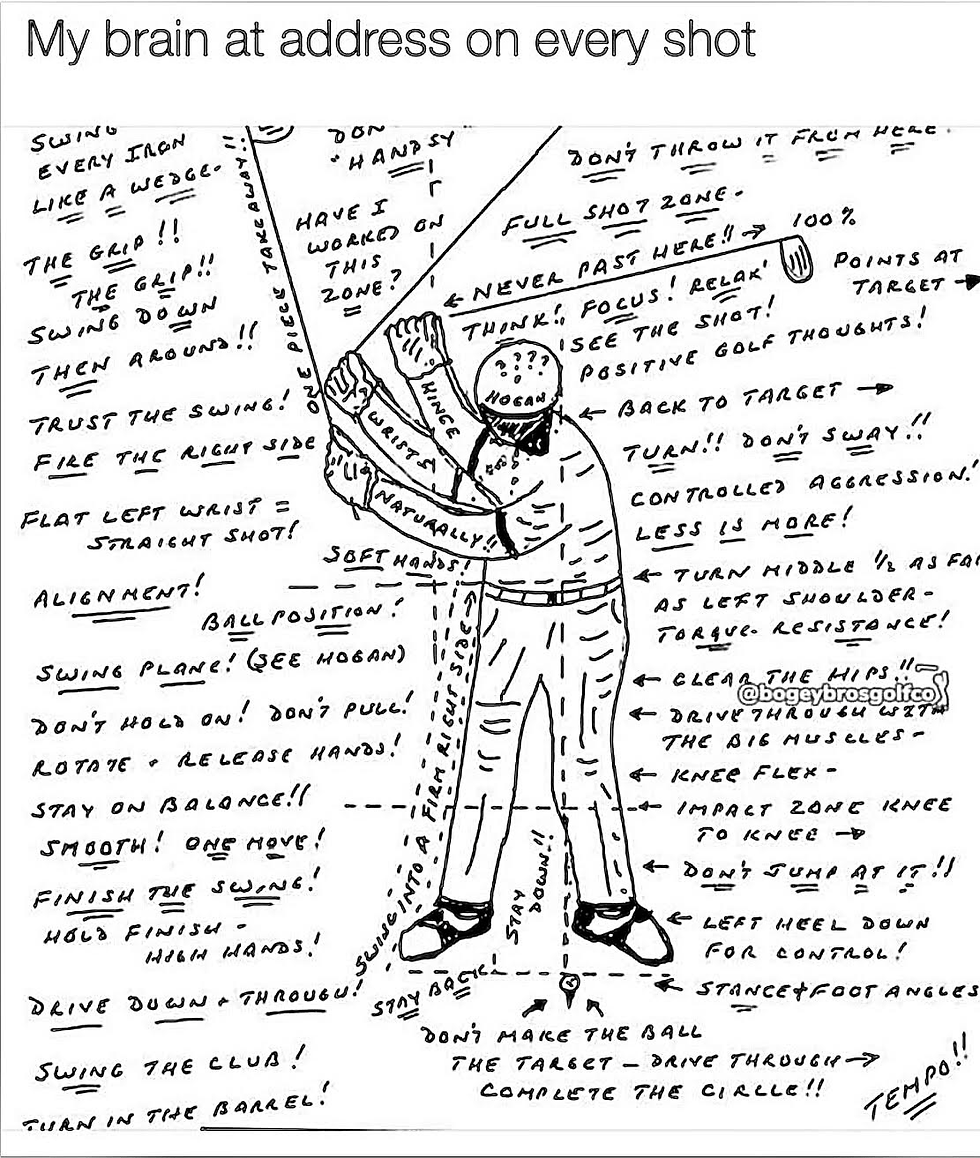 My brain at address on every shot
SWING
EVERY IRON
LIKE A WEDGE-
THE GRIP!!
THE GRIP!!
SWING DOWN
THEN AROUND!!
TRUST THE SWING!
FIRE THE RIGHT SIDE
FLAT LEFT WRIST =
STRAIGHT SHOT!
ALIGNMENT!
BALL POSITION!
SWING PLANE! (SEE HOGAN)
DON'T HOLD ON! DON'T PULL!
ROTATE + RELEASE HANDS!
STAY ON BALANCE!!
SMOOTH! ONE MOVE!
FINISH THE SWING!
HOLD FINISH -
HIGH HANDS!
DRIVE DOWN + THROUGH!
SWING THE CLUB!
TURN IN THE BARREL!
ONE PIECE TAKE AWAY!!
"HANDSY"
HAVE I
WORKED ON
THIS
ZONE?
DON'T THROW IT FROM HERE.
FULL SHOT ZONE-
100%
← NEVER PAST HERE!! →
POINTS AT
TARGET →
THINK!! FOCUS! RELAX!
SEE THE SHOT!
POSITIVE GOLF THOUGHTS!
? ? ? ?
HOGAN
HINGE
WRISTS
NATURALLY!!
SOFT HANDS!
← BACK TO TARGET →
TURN!! DON'T SWAY!!
CONTROLLED AGGRESSION!
LESS IS MORE!
← TURN MIDDLE 1/2 AS FA
AS LEFT SHOULDER-
TORQUE- RESISTANCE!
← CLEAR THE HIPS!!
@bogeybrosgolfco
← DRIVE THROUGH WITH
THE BIG MUSCLES-
← KNEE FLEX-
← IMPACT ZONE KNEE
TO KNEE →
← DON'T JUMP AT IT!!
← LEFT HEEL DOWN
FOR CONTROL!
← STANCE + FOOT ANGLES
SWING INTO A FIRM RIGHT SIDE →
STAY DOWN!!
STAY BACK!
DON'T MAKE THE BALL
THE TARGET - DRIVE THROUGH →
COMPLETE THE CIRCLE!!
TEMPO!!